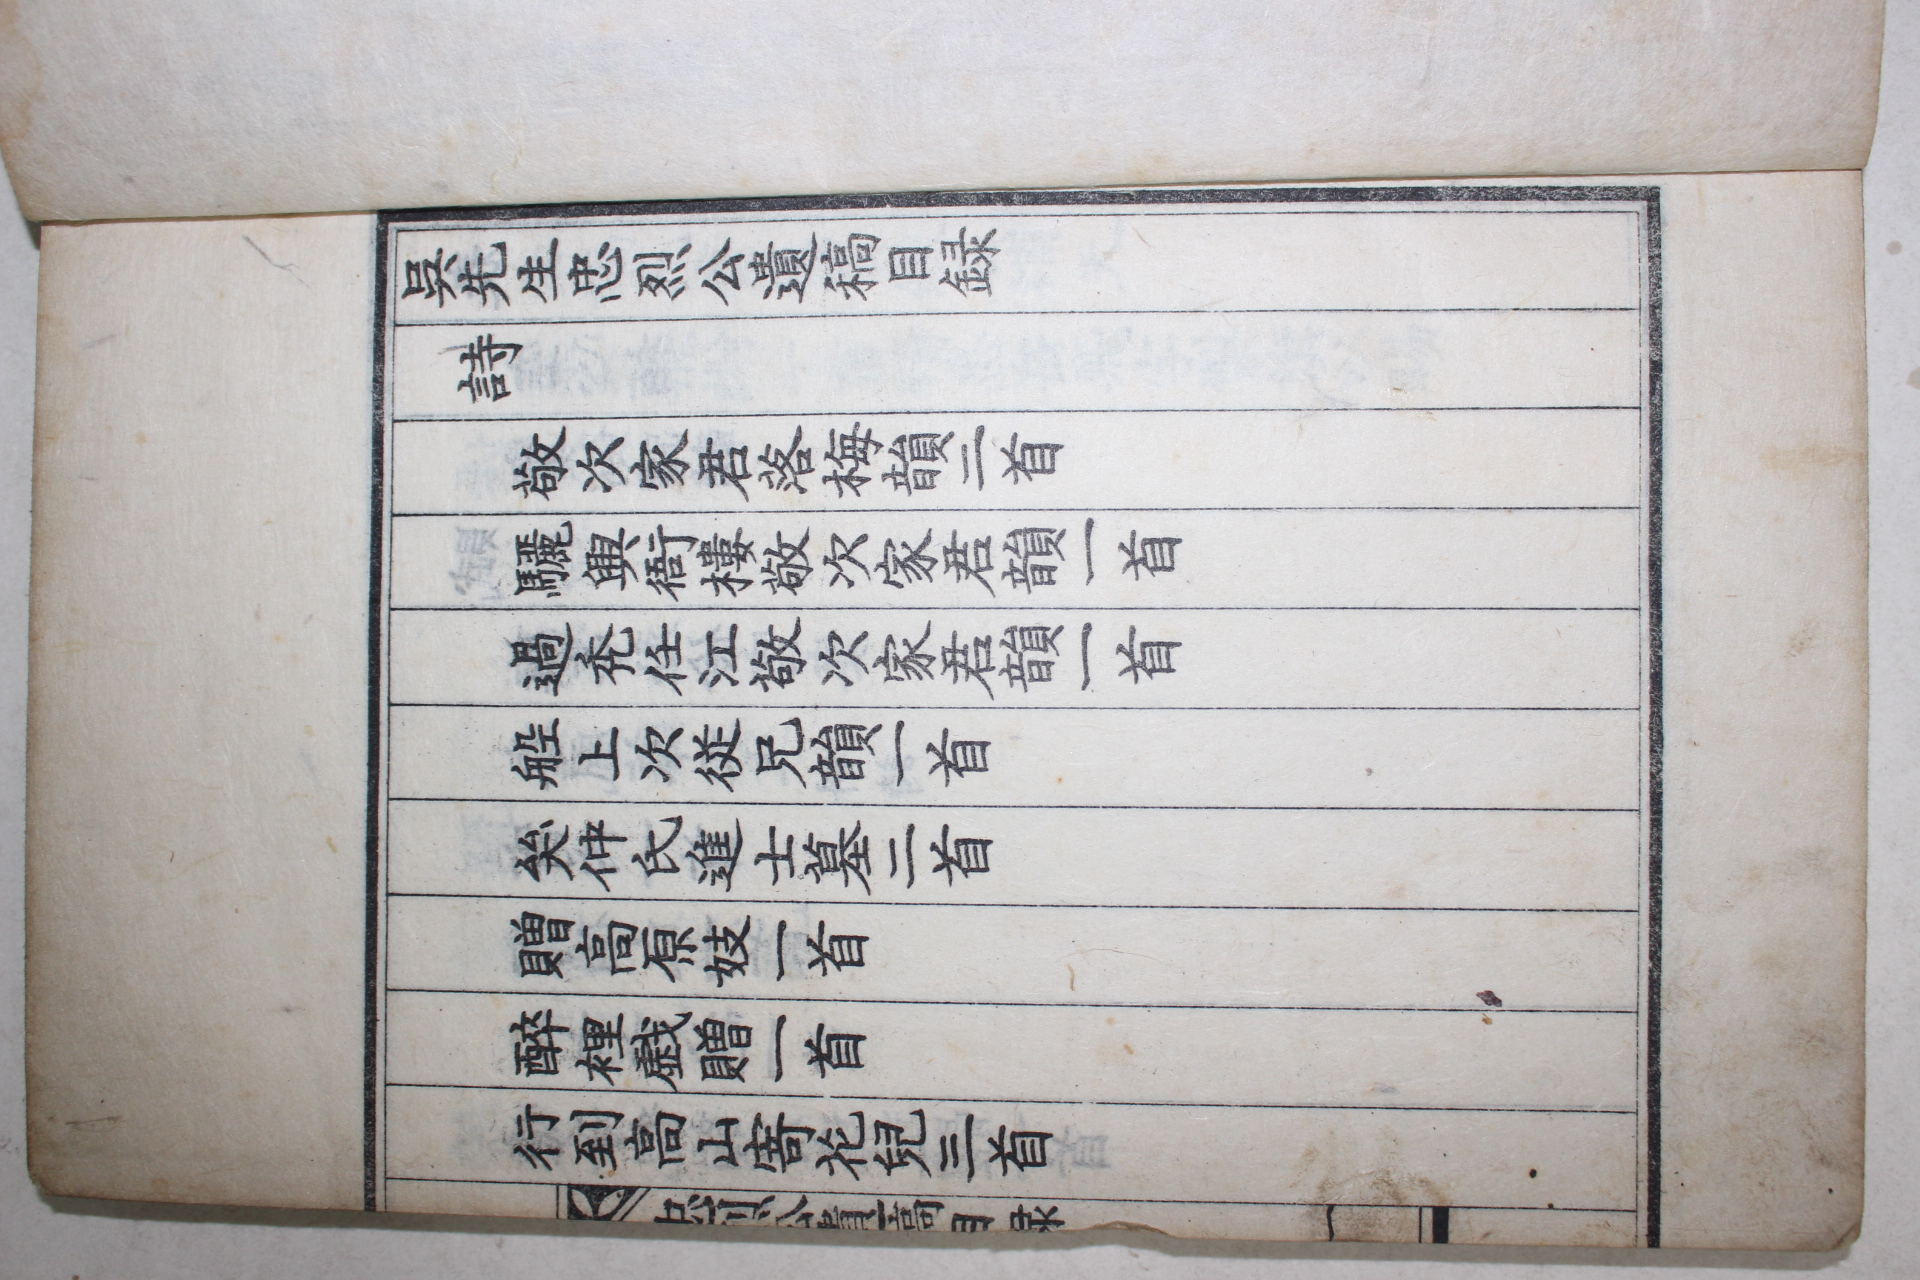 吳先生忠烈公遺稿目録
詩
敬次家君落梅韻二首
驪興衙樓敬次家君韻一首
過禿任江敬次家君韻一首
船上次從兄韻一首
哭仲氏進士墓二首
贈高原妓一首
醉裡戯贈一首
行到高山寄花兒三首
忠烈公遺稿目録
一